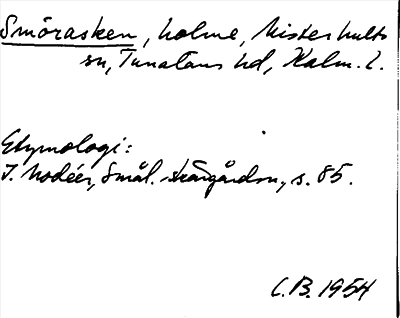 Smörasken, holme, Misterhults
sn, Tunaläns hd, Kalm. l.
Etymologi:
I. Modéer, Smål. skärgården, s. 85.
C.B. 1954